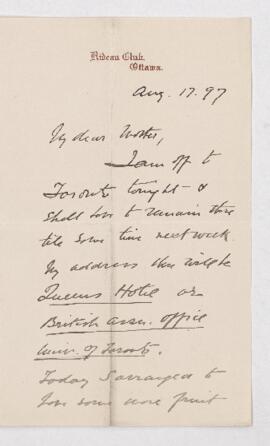 Rideau Club,
Ottawa.
Aug. 17. 97
My dear Mother,
I am off to
Toronto tonight &
shall have to remain there
till some time next week.
My address there will be
Queens Hotel or
British Assn. office
Univ. of Toronto.
Today I arranged to
have some more fruit